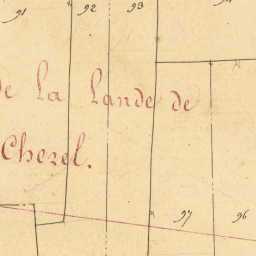 91 92 93
de la Lande de
Cherel.
97 96